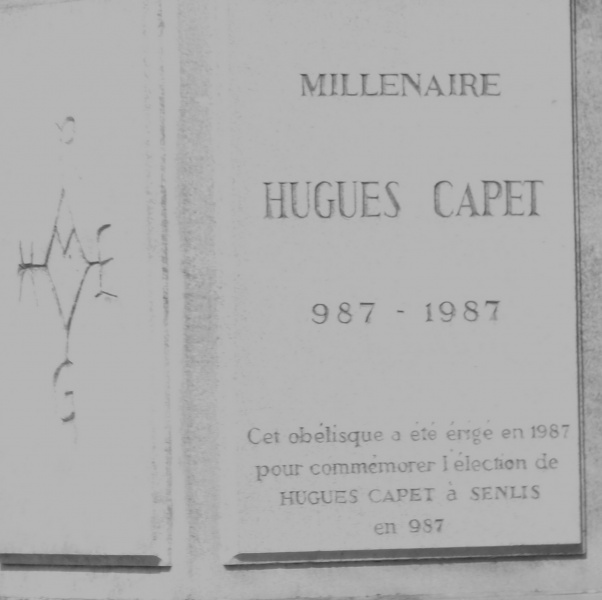 MILLENAIRE
HUGUES CAPET
987 - 1987
Cet obélisque a été érigé en 1987
pour commémorer l'élection de
HUGUES CAPET à SENLIS
en 987